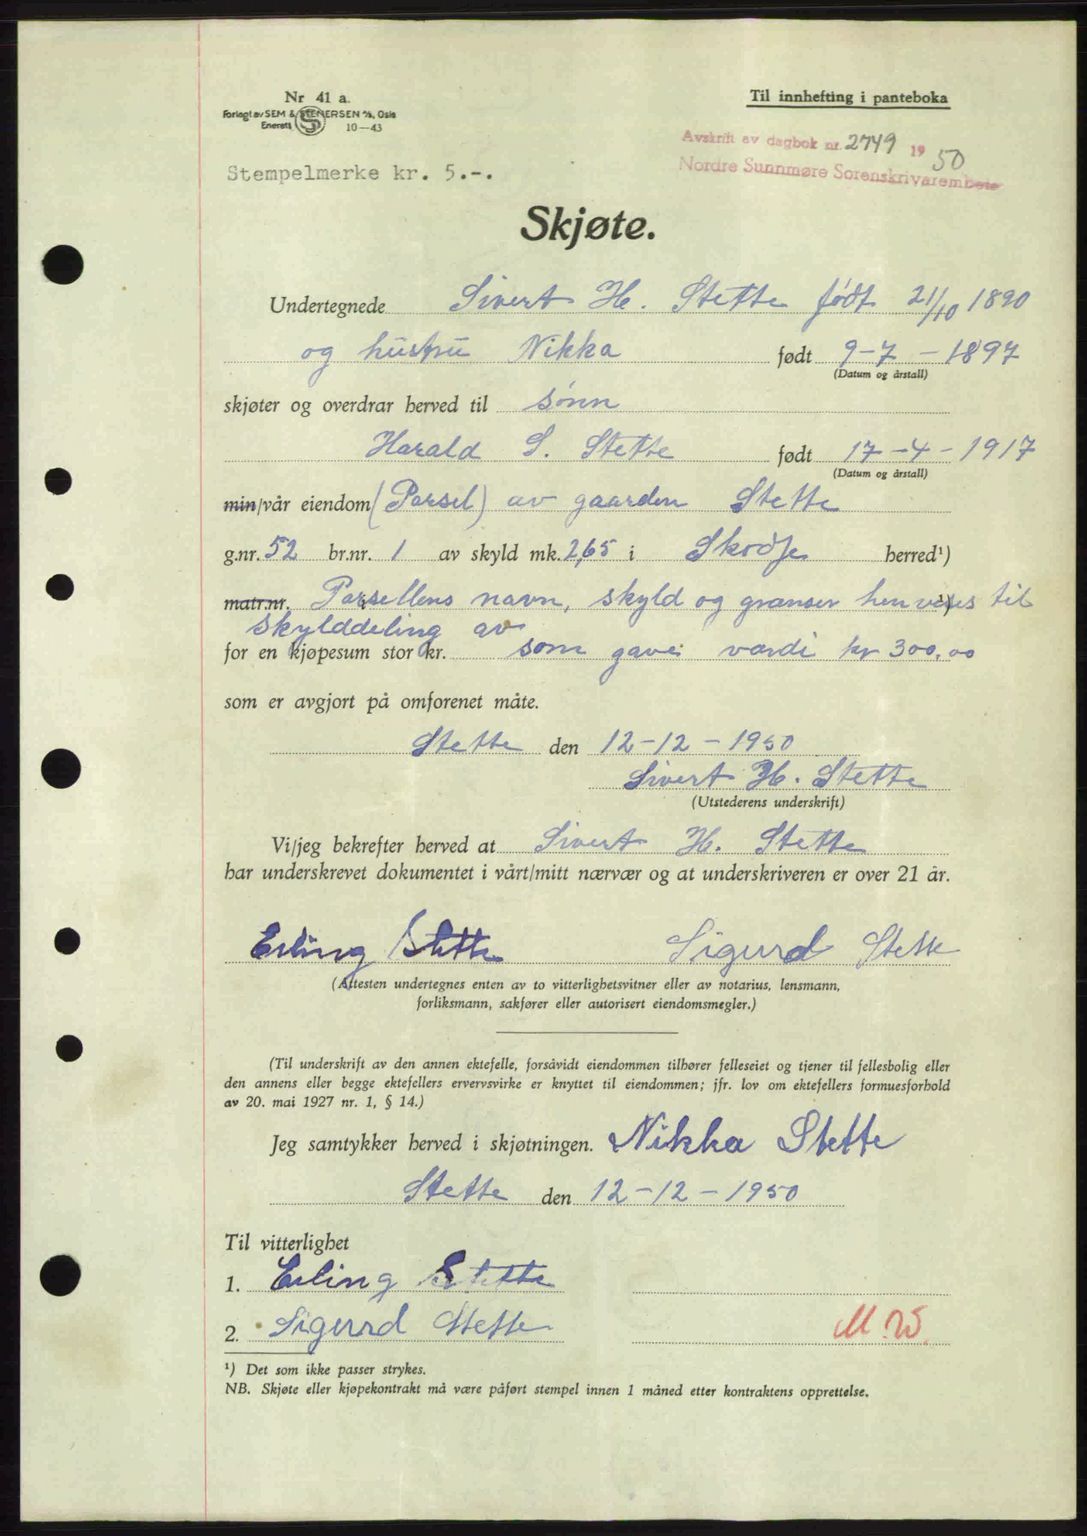 Nr 41 a.
Forlagt av SEM & STENERSEN A/S, Oslo
Enerett 10-43
Til innhefting i panteboka
Avskrift av dagbok nr. 2749 1950
Nordre Sunnmøre Sorenskrivarembete
Stempelmerke kr. 5.-.
Skjøte.
Undertegnede Sivert H. Stette født 21/10 1890
og hustru Nikka født 9-7-1897
(Datum og årstall)
skjøter og overdrar herved til sønn
Harald S. Stette født 17-4-1917
(Datum og årstall)
min/vår eiendom (Parsel) av gaarden Stette
g.nr. 52 br.nr. 1 av skyld mk. 2,65 i Skodje herred¹)
matr.nr. Parsellens navn, skyld og grenser henvises til
skylddeling av
for en kjøpesum stor kr. som gave: værdi kr 300,00
som er avgjort på omforenet måte.
Stette den 12-12-1950
Sivert H. Stette
(Utstederens underskrift)
Vi/jeg bekrefter herved at Sivert H. Stette
har underskrevet dokumentet i vårt/mitt nærvær og at underskriveren er over 21 år.
Erling Stette Sigurd Stette
(Attesten undertegnes enten av to vitterlighetsvitner eller av notarius, lensmann,
forliksmann, sakfører eller autorisert eiendomsmegler.)
(Til underskrift av den annen ektefelle, forsåvidt eiendommen tilhører felleseiet og tjener til fellesbolig eller
den annens eller begge ektefellers ervervsvirke er knyttet til eiendommen; jfr. lov om ektefellers formuesforhold
av 20. mai 1927 nr. 1, § 14.)
Jeg samtykker herved i skjøtningen. Nikka Stette
Stette den 12-12-1950
Til vitterlighet
1. Erling Stette
2. Sigurd Stette M.W.
¹) Det som ikke passer strykes.
NB. Skjøte eller kjøpekontrakt må være påført stempel innen 1 måned etter kontraktens opprettelse.